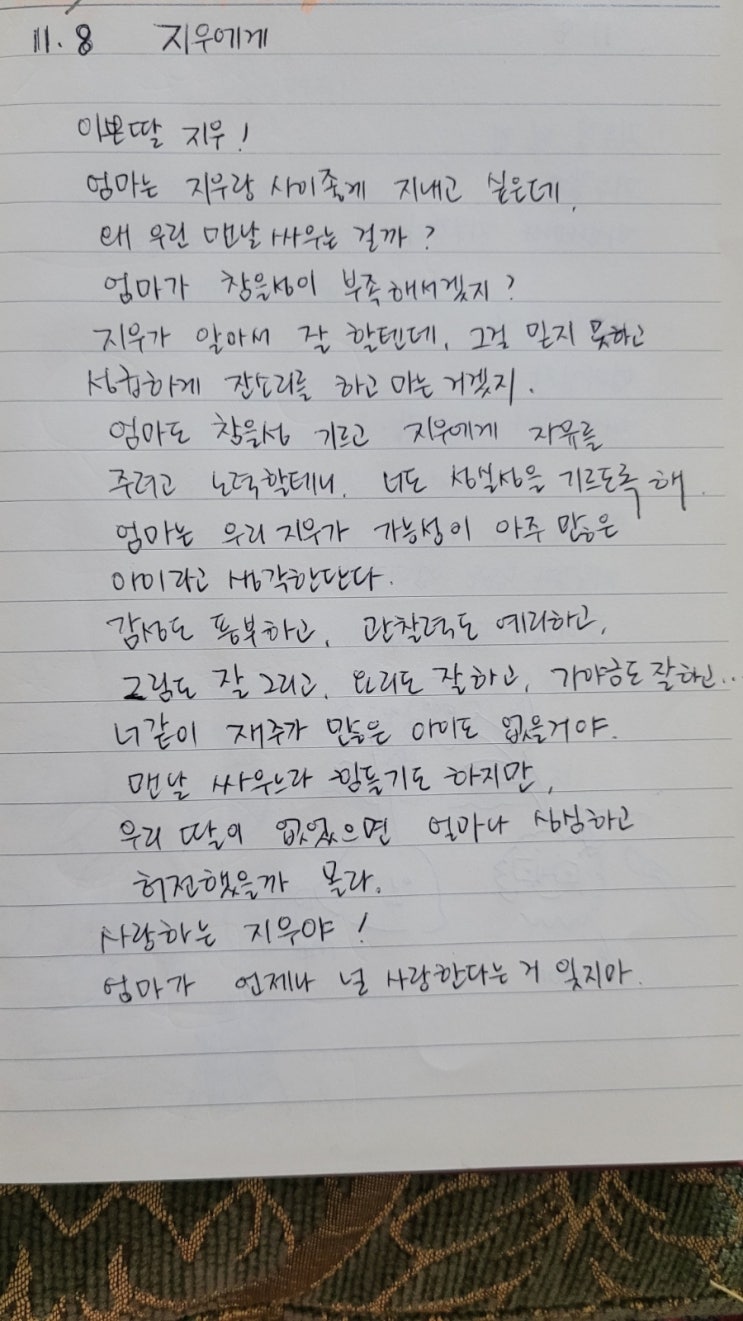 11. 8 지우에게
이쁜딸 지우!
엄마는 지우랑 사이좋게 지내고 싶은데,
왜 우린 맨날 싸우는 걸까?
엄마가 참을성이 부족해서겠지?
지우가 알아서 잘 할텐데, 그걸 믿지 못하고
성급하게 잔소리를 하고 마는 거겠지.
엄마도 참을성 기르고 지우에게 자유를
주려고 노력할테니, 너도 성실성을 기르도록 해.
엄마는 우리 지우가 가능성이 아주 많은
아이라고 생각한단다.
감성도 풍부하고, 관찰력도 예리하고,
그림도 잘 그리고, 요리도 잘하고, 가야금도 잘하고..
너같이 재주가 많은 아이도 없을거야.
맨날 싸우느라 힘들기도 하지만,
우리 딸이 없었으면 얼마나 심심하고
허전했을까 몰라.
사랑하는 지우야!
엄마가 언제나 널 사랑한다는 거 잊지마.